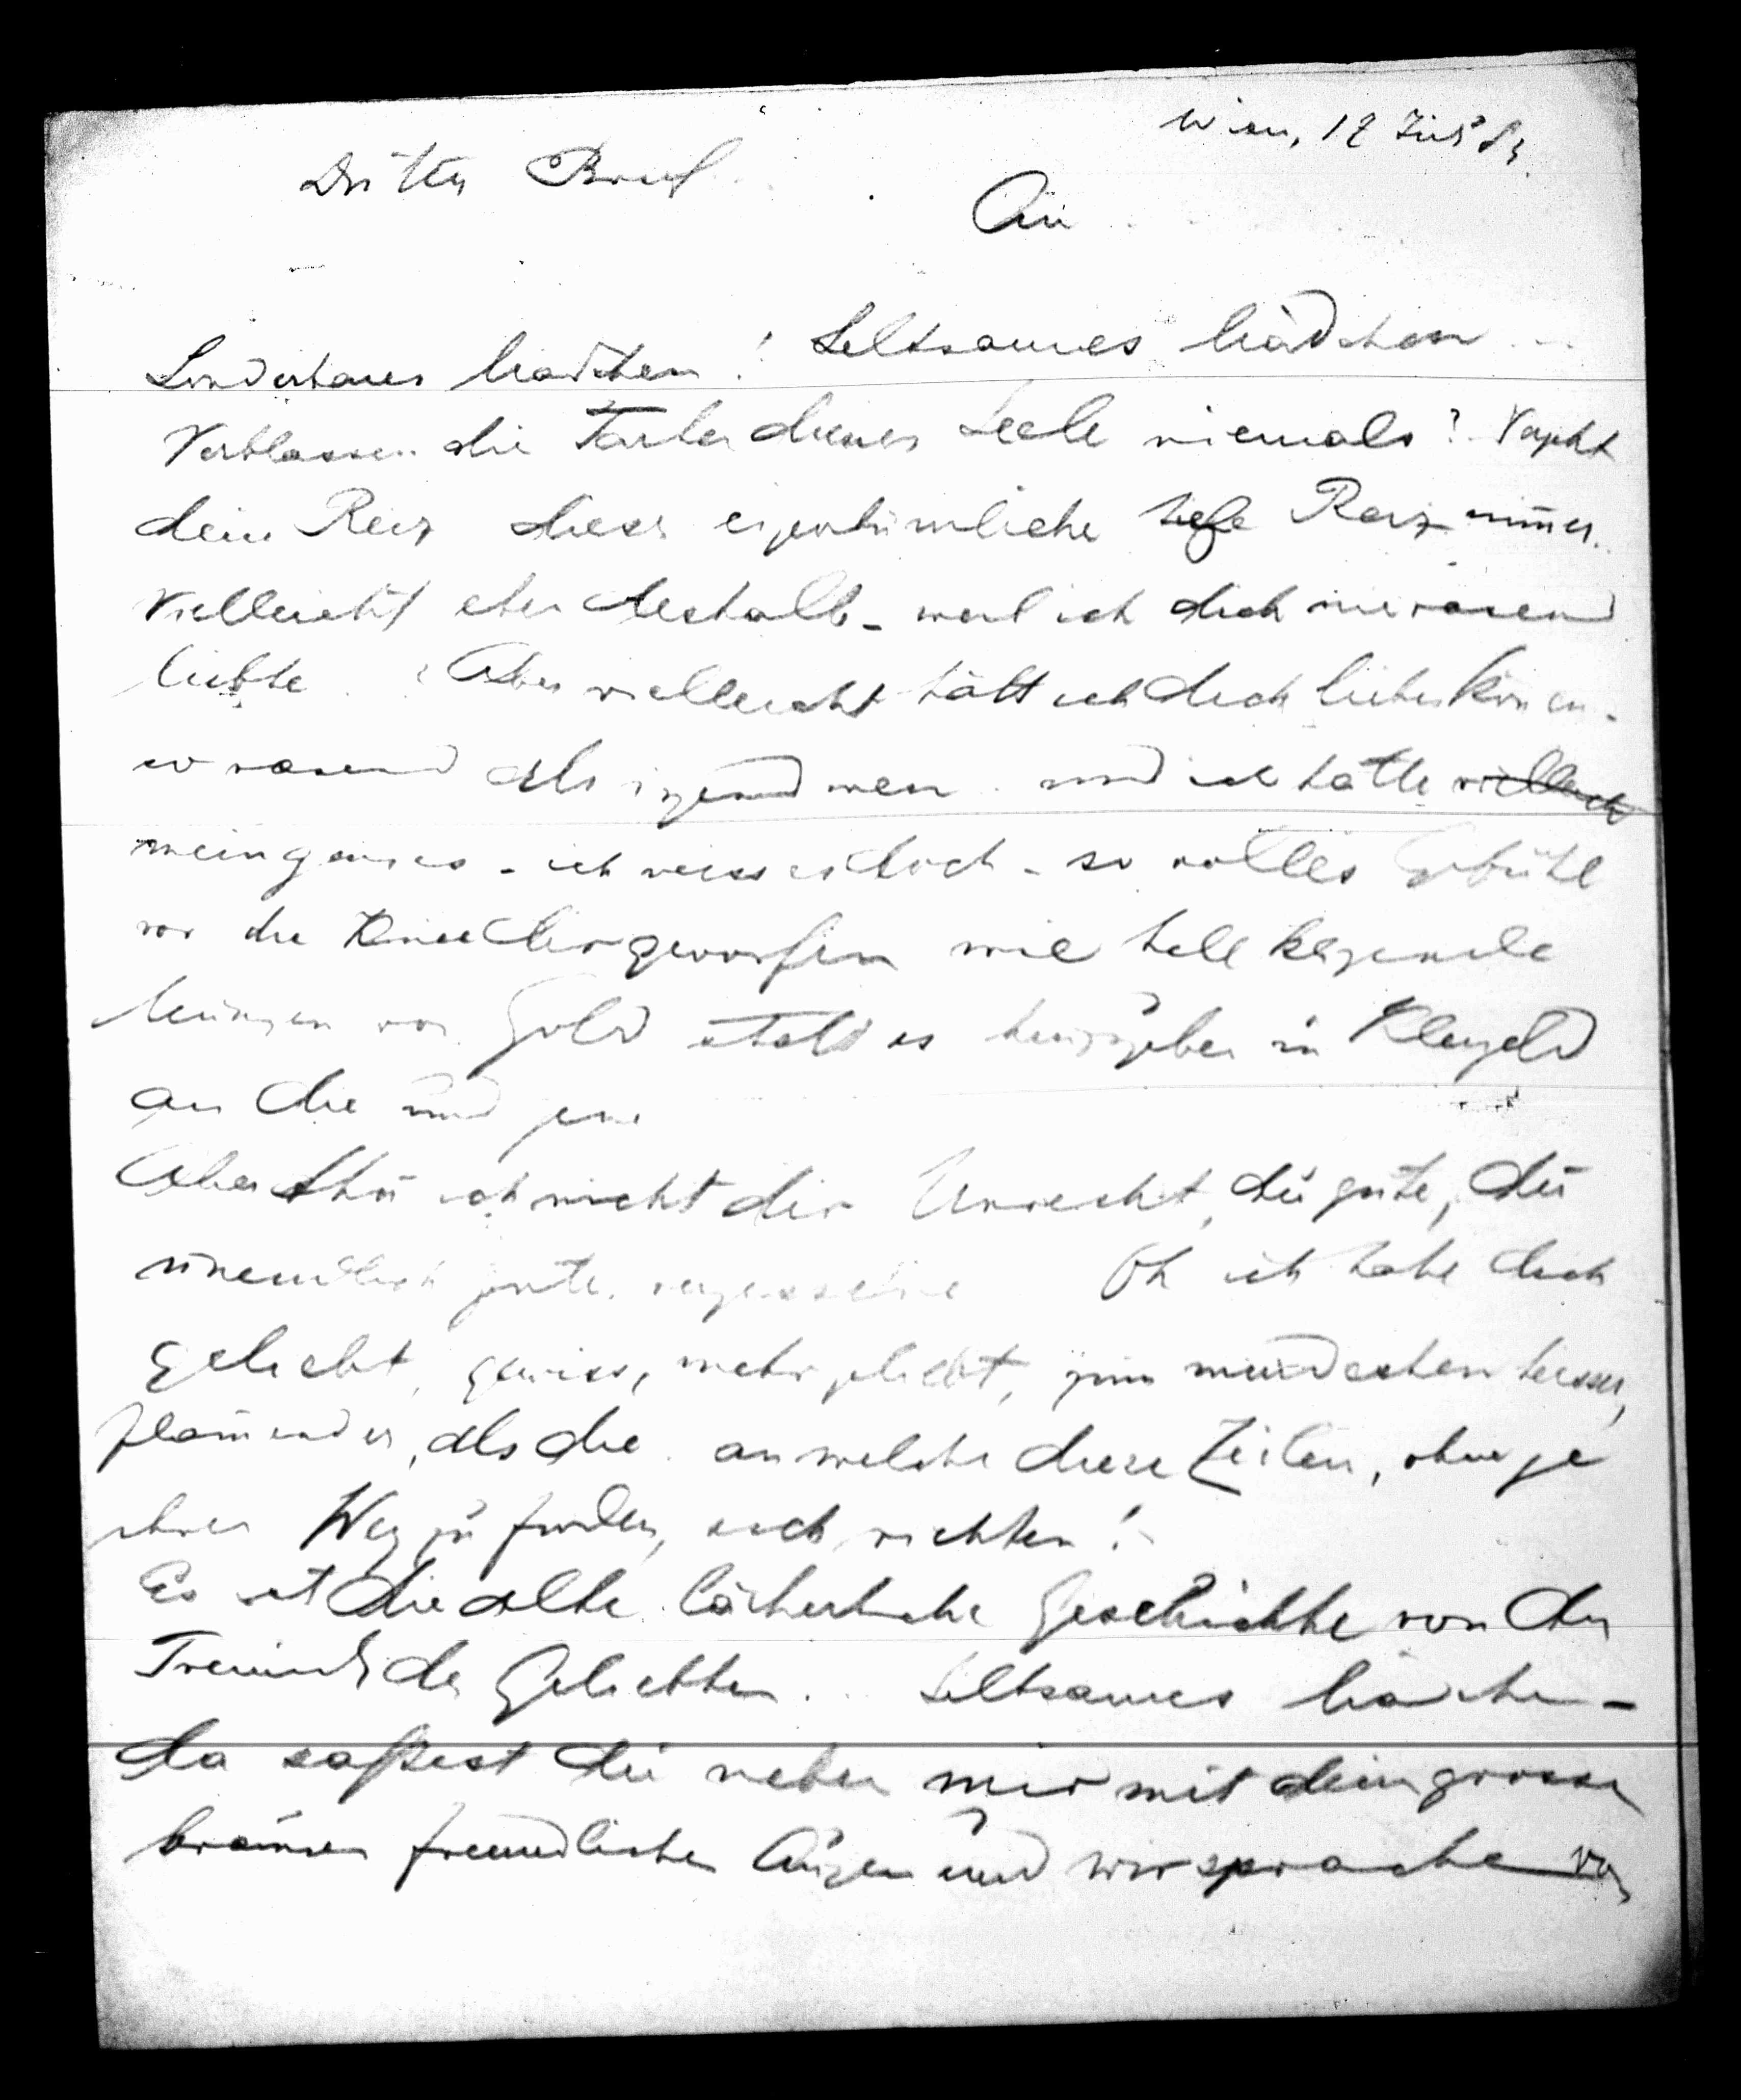 Wien, 12
Dritter Brief
An
Sonderbares Mädchen! Seltsames Mädchen ...
Verblassen die Farben deiner Seele niemals?
dein Reiz dieser eigentümliche tiefe Reiz nimer.
Vielleicht eben deshalb – weil ich dich nie rasend
liebte. Aber vielleicht hätt ich dich lieben könen.
so rasend als irgend wen. und ich hätte vielleicht
mein ganzes – ich weiss es doch – so volles Gefühl
vor die Kniee dir geworfen wie hell
Münzen von Gold statt es hinzugeben in Kleingeld
an die und jene
Aber thu ich nicht dir Unrecht, du gute, du
unendlich gute, vergessene Oh ich habe dich
geliebt, gewiss, mehr geliebt, zum mindesten heisser,
flamender, als die an welche diese Zeilen, ohne je
ihren Weg zu finden, sich richten!
Es ist die alte lächerliche Geschichte von der
Freundin der Geliebten ... Seltsames Mädchen –
da saßest du neben mir mit dein grossen
braunen freundlichen Augen und wir sprachen von